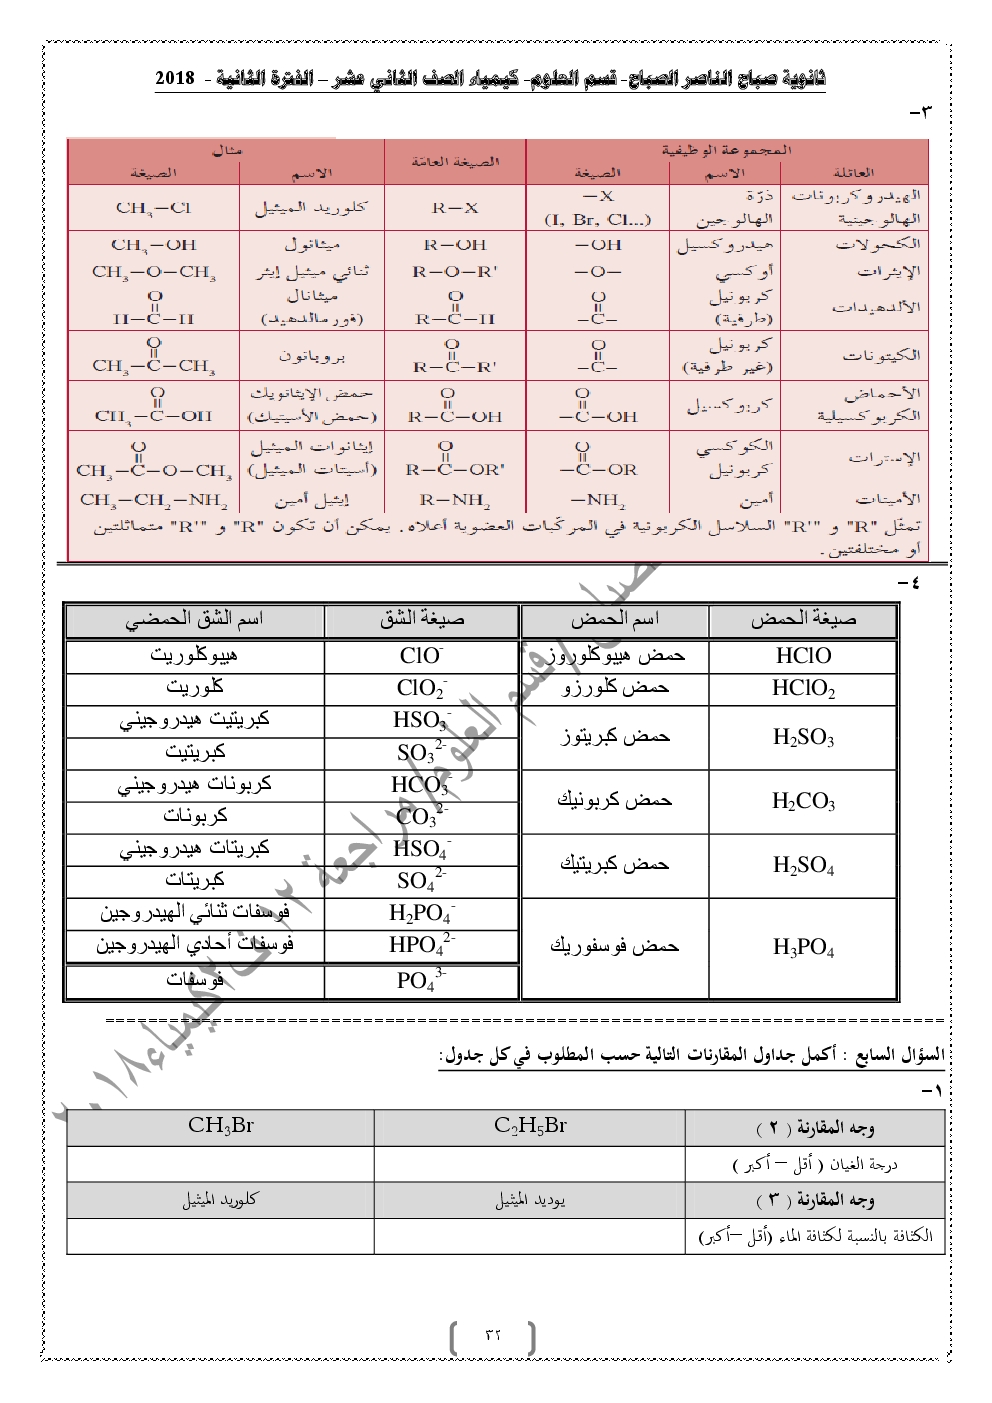 ثانوية صباح الناصر الصباح- قسم العلوم- كيمياء الصف الثاني عشر – الفترة الثانية - 2018
٣-
المجموعة الوظيفية الصيغة العامّة مثال
العائلة الاسم الصيغة الاسم الصيغة
الهيدروكربونات الهالوجينية ذرّة الهالوجين –X (I, Br, Cl...) R–X كلوريد الميثيل CH3–Cl
الكحولات هيدروكسيل –OH R–OH ميثانول CH3–OH
الإيثرات أوكسي –O– R–O–R' ثنائي ميثيل إيثر CH3–O–CH3
الألدهيدات كربونيل (طرفية) O –C– O R–C–H ميثانال (فورمالدهيد) O H–C–H
الكيتونات كربونيل (غير طرفية) O –C– O R–C–R' بروبانون O CH3–C–CH3
الأحماض الكربوكسيلية كربوكسيل O –C–OH O R–C–OH حمض الإيثانويك (حمض الأسيتيك) O CH3–C–OH
الإسترات الكوكسي كربونيل O –C–OR O R–C–OR' إيثانوات الميثيل (أسيتات الميثيل) O CH3–C–O–CH3
الأمينات أمين –NH2 R–NH2 إيثيل أمين CH3–CH2–NH2
تمثّل "R" و "R'" السلاسل الكربونية في المركّبات العضوية أعلاه. يمكن أن تكون "R" و "R'" متماثلتين
أو مختلفتين.
٤-
صيغة الحمض اسم الحمض صيغة الشق اسم الشق الحمضي
HClO حمض هيبوكلوروز ClO- هيبوكلوريت
HClO2 حمض كلورزو ClO2- كلوريت
H2SO3 حمض كبريتوز HSO3- كبريتيت هيدروجيني
SO3 2- كبريتيت
H2CO3 حمض كربونيك HCO3- كربونات هيدروجيني
CO3 2- كربونات
H2SO4 حمض كبريتيك HSO4- كبريتات هيدروجيني
SO4 2- كبريتات
H3PO4 حمض فوسفوريك H2PO4- فوسفات ثنائي الهيدروجين
HPO4 2- فوسفات أحادي الهيدروجين
PO4 3- فوسفات
السؤال السابع : أكمل جداول المقارنات التالية حسب المطلوب في كل جدول:
١-
وجه المقارنة ( ٢ ) C2H5Br CH3Br
درجة الغيان ( أقل – أكبر )
وجه المقارنة ( ٣ ) يوديد الميثيل كلوريد الميثيل
الكثافة بالنسبة لكثافة الماء (أقل –أكبر)
٣٢
قسم العلوم/ مراجعة ١٢ ف٢ كيمياء ٢٠١٨